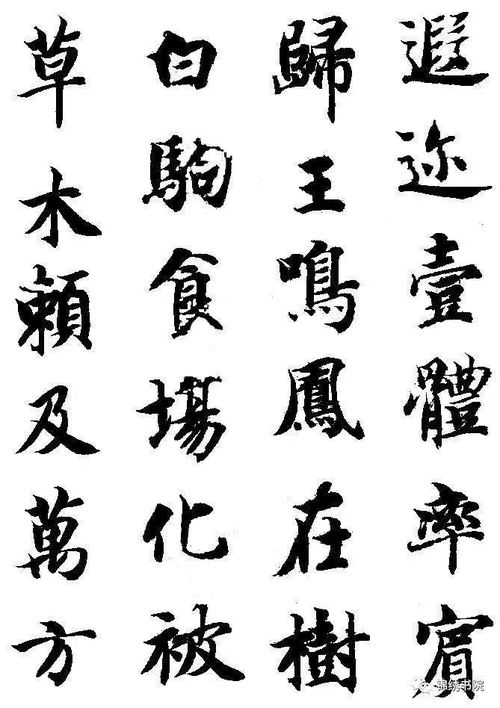 遐迩壹體率賓
歸王鳴鳳在樹
白駒食場化被
草木賴及萬方
锦绣书院